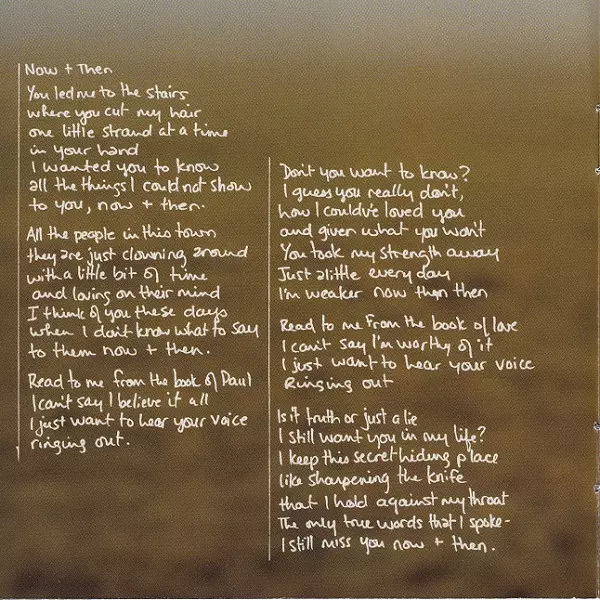 Now + Then
You led me to the stairs
where you cut my hair
one little strand at a time
in your hand
I wanted you to know
all the things I could not show
to you, now + then.
All the people in this town
they are just clowning around
with a little bit of time
and loving on their mind
I think of you these days
when I don't know what to say
to them now + then.
Read to me from the book of Paul
I can't say I believe it all
I just want to hear your voice
ringing out.
Don't you want to know?
I guess you really don't,
how I could've loved you
and given what you won't
You took my strength away
Just a little every day
I'm weaker now than then
Read to me from the book of love
I can't say I'm worthy of it
I just want to hear your voice
Ringing out
Is it truth or just a lie
I still want you in my life?
I keep this secret hiding place
like sharpening the knife
that I hold against my throat
The only true words that I spoke-
I still miss you now + then.